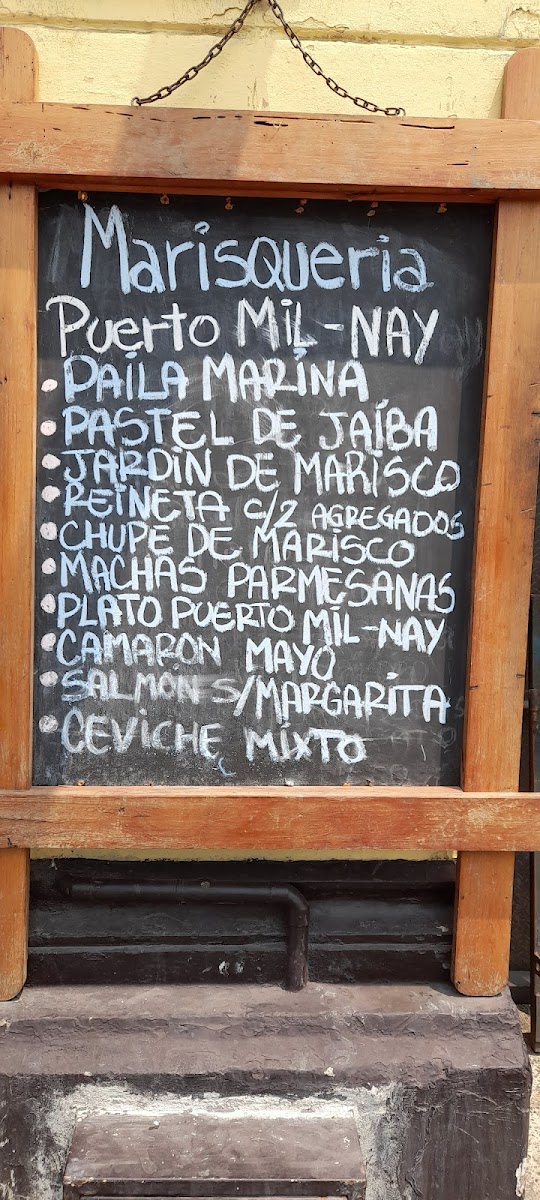 Marisqueria
Puerto MiL-NAY
PAiLA MARiNA
PASTEL DE JAíBA
JARDiN DE MARiSCO
REiNETA c/2 AGREGADOS
CHUPE DE MARISCO
MACHAS PARMESANAS
PLATO PUERTO MiL-NAY
CAMARON MAYO
SALMÓN S/MARGARiTA
CEVICHE MiXTO